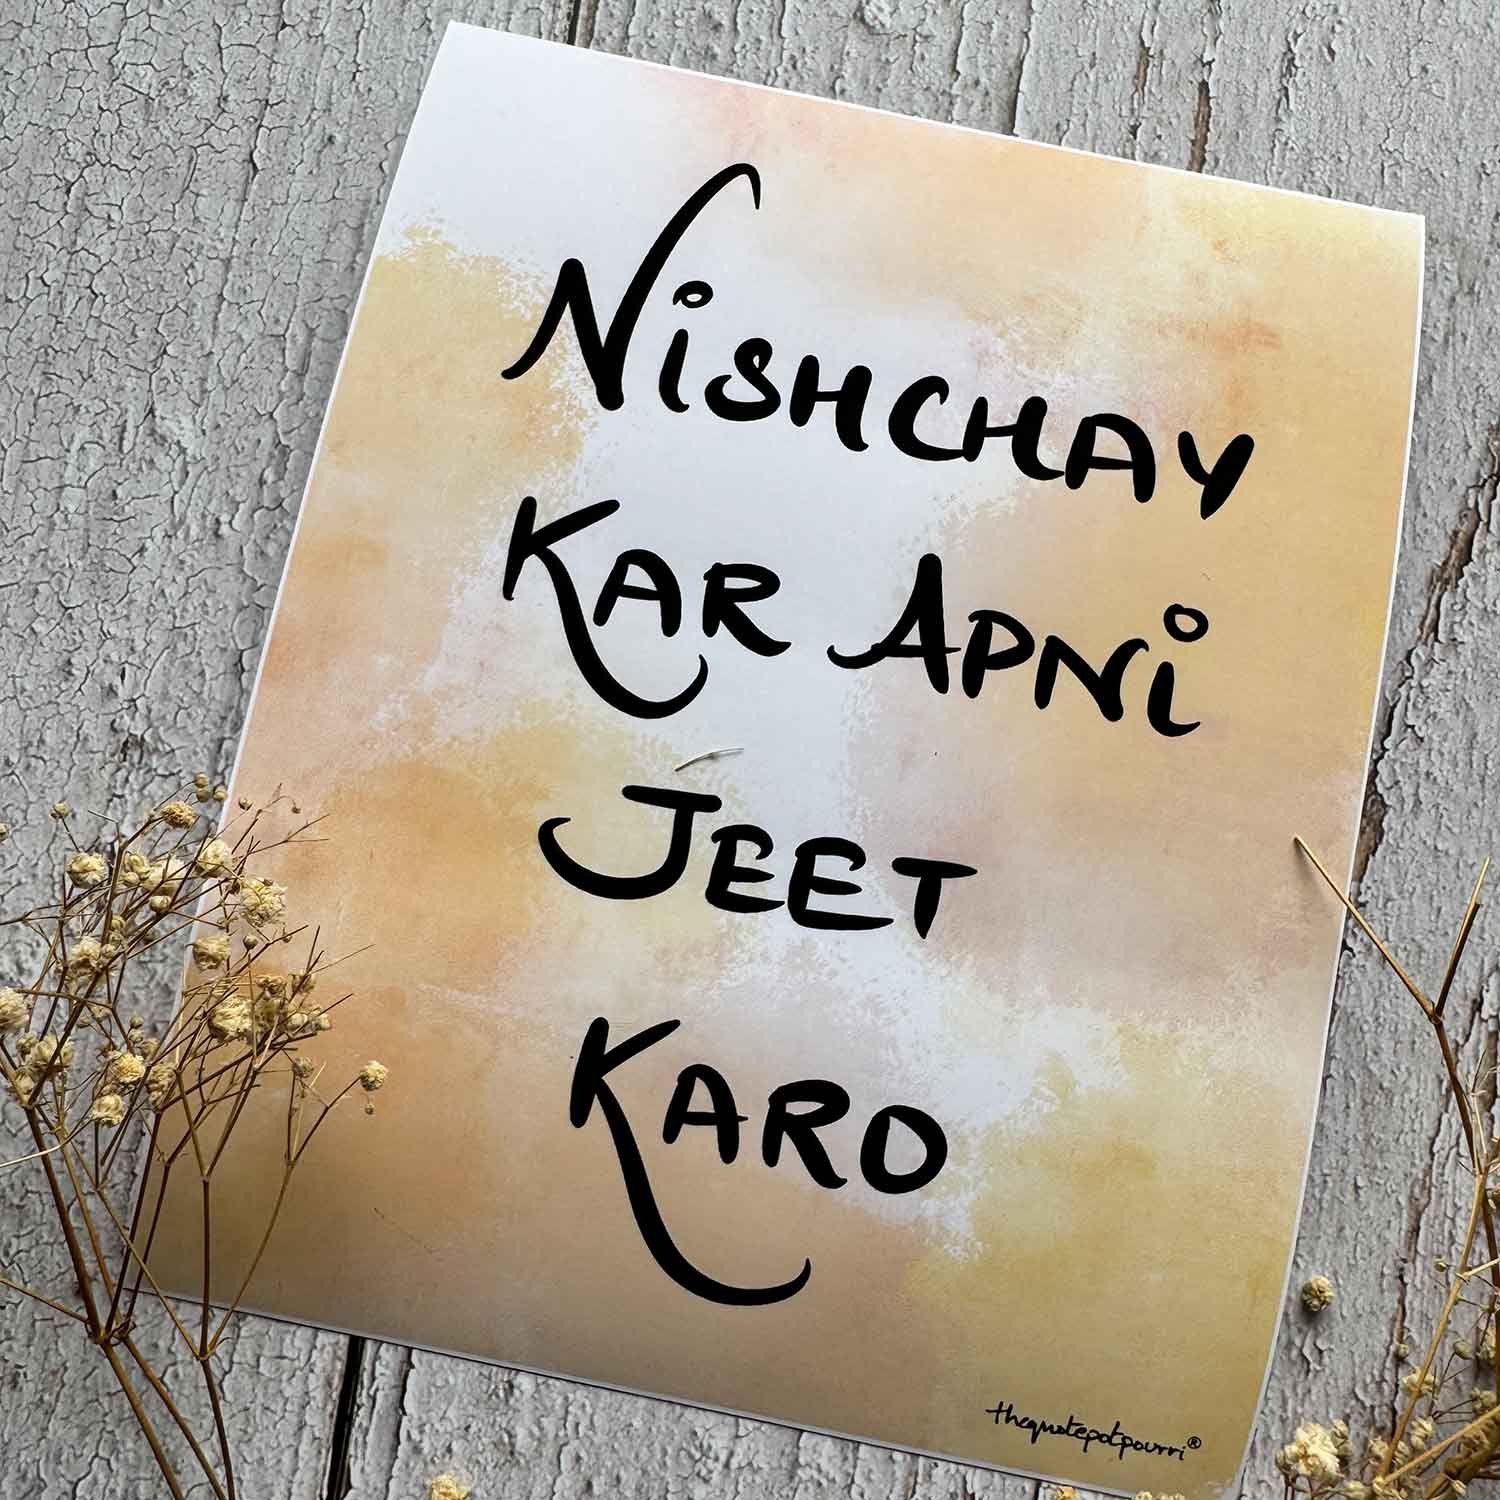 Nishchay
Kar Apni
Jeet
Karo
thequotepotpourri®